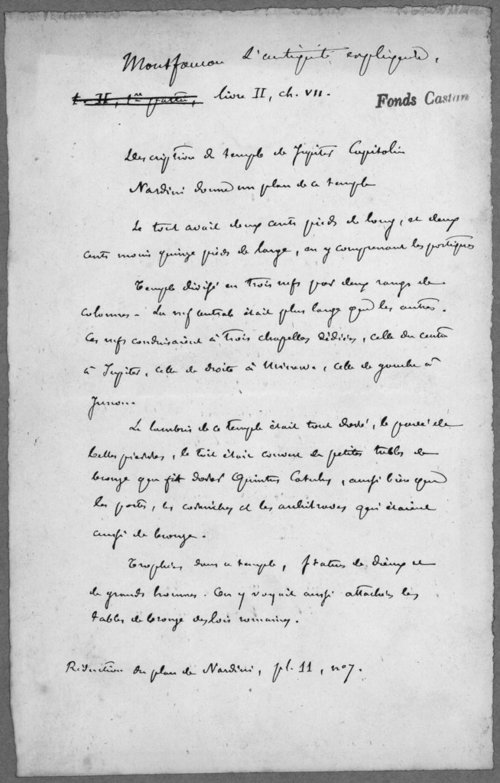 Montfaucon L'antiquité expliquée,
t. II, 1re partie, livre II, ch. VII.
Fonds Castan
Description du temple de Jupiter Capitolin
Nardini donne un plan de ce temple
Le tout avait deux cents pieds de long, et deux
cents moins quinze pieds de large, en y comprenant les portiques
Temple divisé en trois nefs par deux rangs de
colonnes - La nef centrale était plus large que les autres.
Ces nefs conduisaient à trois chapelles dédiées, celle du centre
à Jupiter, celle de droite à Minerve, celle de gauche à
Junon.
Le lambris de ce temple était tout doré, le pavé de
belles pierres, le toit était couvert de petites tables de
bronze que fit dorer Quintus Catulus, aussi bien que
les portes, les corniches et les architraves qui étaient
aussi de bronze.
Trophées dans ce temple, statues de dieux et
de grands hommes. On y voyait aussi attachées les
tables de bronze des lois romaines.
Réduction du plan de Nardini, pl. 11, no 7.